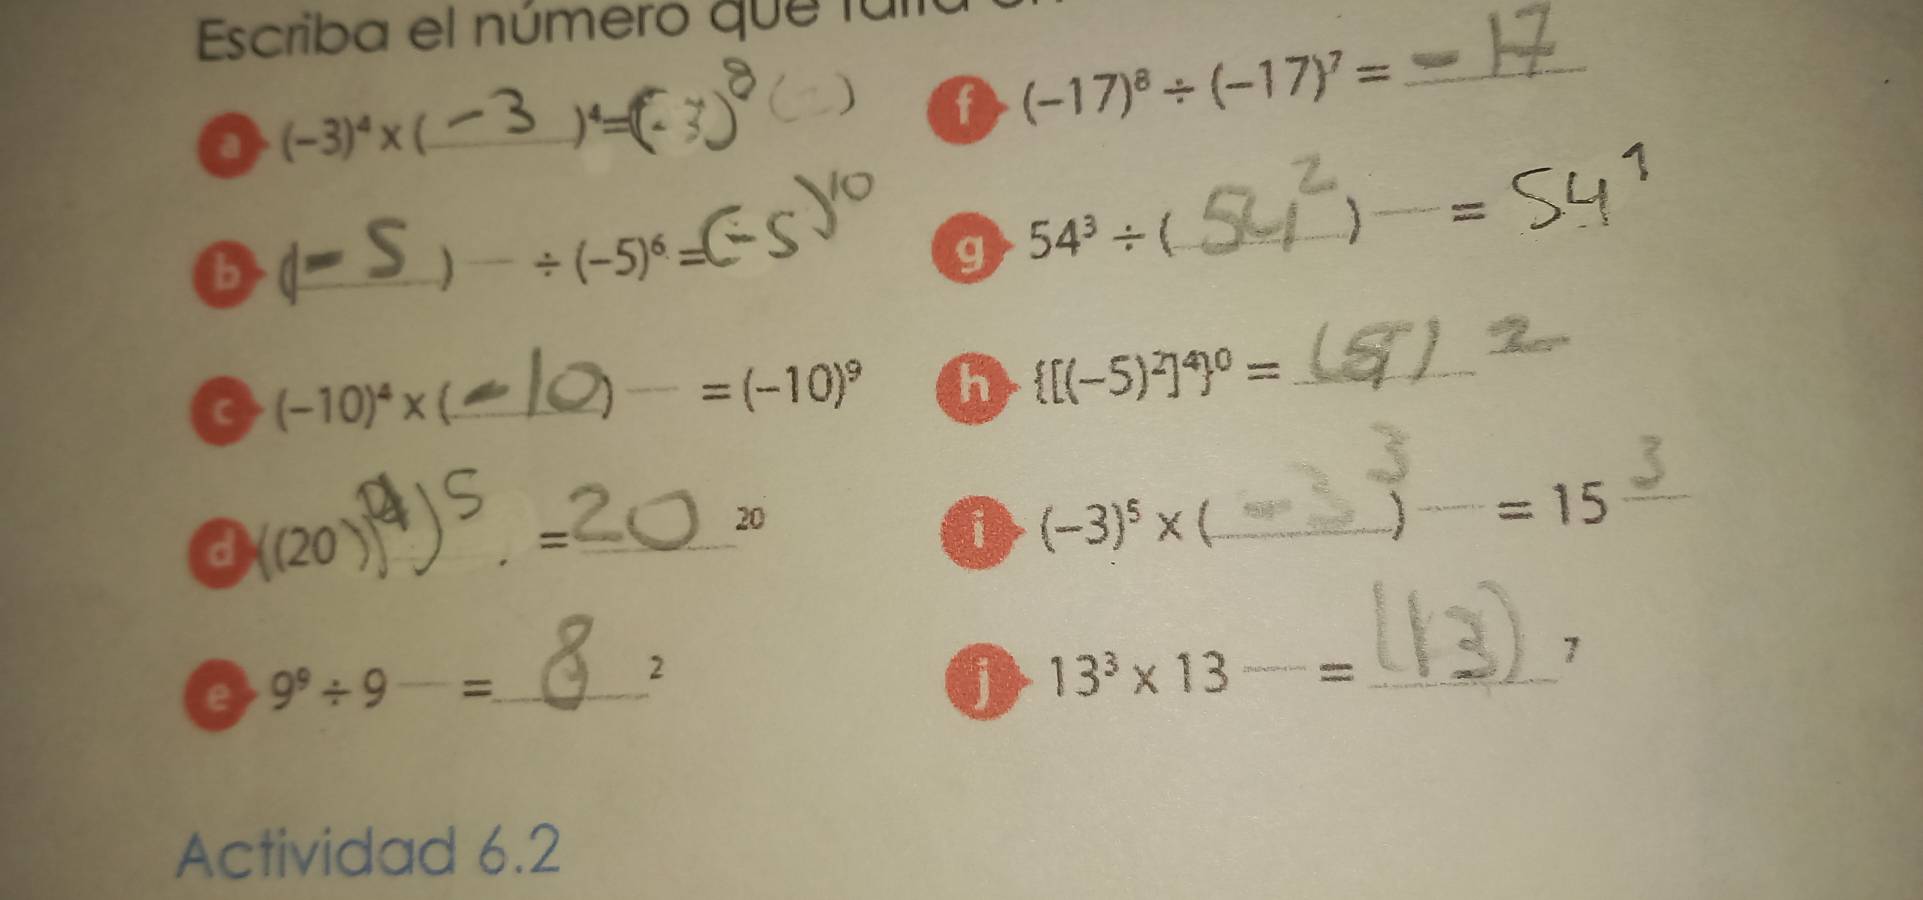 Escriba el número que
a (-3)⁴ × ( -3 )⁴ = (-3)⁸
b (-5) ÷ (-5)⁶ = (-5)¹⁰
c (-10)⁴ × (-10) = (-10)⁹
d ((20)⁴)⁵ = 20 ²⁰
e 9⁹ ÷ 9 = 8 ²
f (-17)⁸ ÷ (-17)⁷ = -17
g 54³ ÷ (54²) = 54¹
h {[(-5)²]⁴}⁰ = 2
i (-3)⁵ × (-3³) = 15 ³
j 13³ × 13 = (13) ⁷
Actividad 6.2